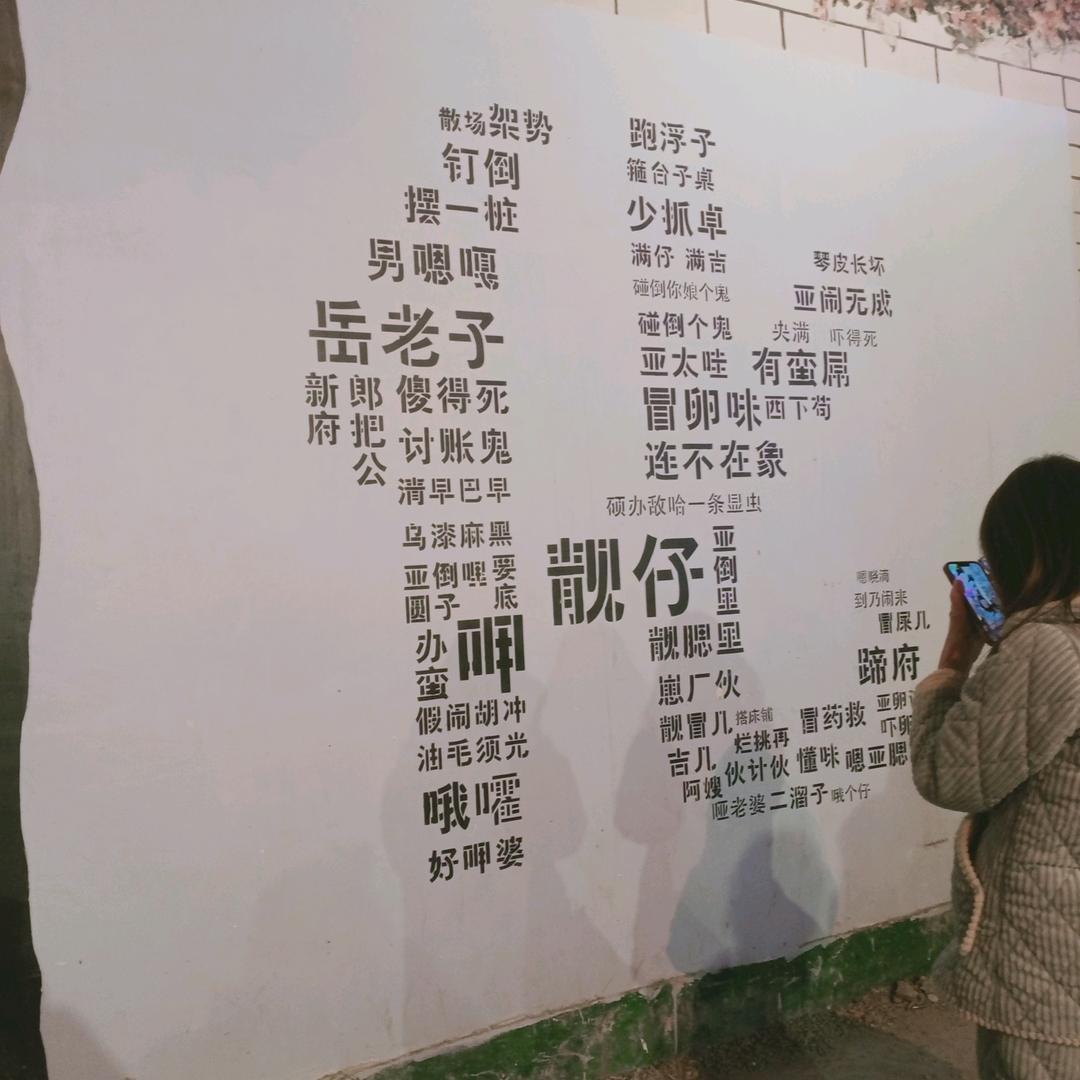 散场架势
钉倒
摆一桩
男嗯嘎
岳老子
新府
郎把公
傻得死
讨账鬼
清早巴早
乌漆麻黑
亚倒嘿
要底
圆子
办蛮
呷
假闹胡冲
油毛须光
哦嚯
好呷婆
跑浮子
箍台子桌
少抓卓
满仔 满吉
碰倒你娘个鬼
碰倒个鬼
亚太哇
冒卵味
连不在象
硕办敌哈一条显虫
琴皮长坏
亚闹无成
央满
吓得死
有蛮屌
西下苟
靓仔
亚倒里
靓腮里
崽厂伙
靓冒儿
搭床铺
冒药救
吉儿
烂挑再
懂味
嗯亚腮
阿嫂
伙计伙
哑老婆
二溜子
哦个仔
嗯晓滴
到乃闹来
冒尿几
蹄府
亚卵
吓卵